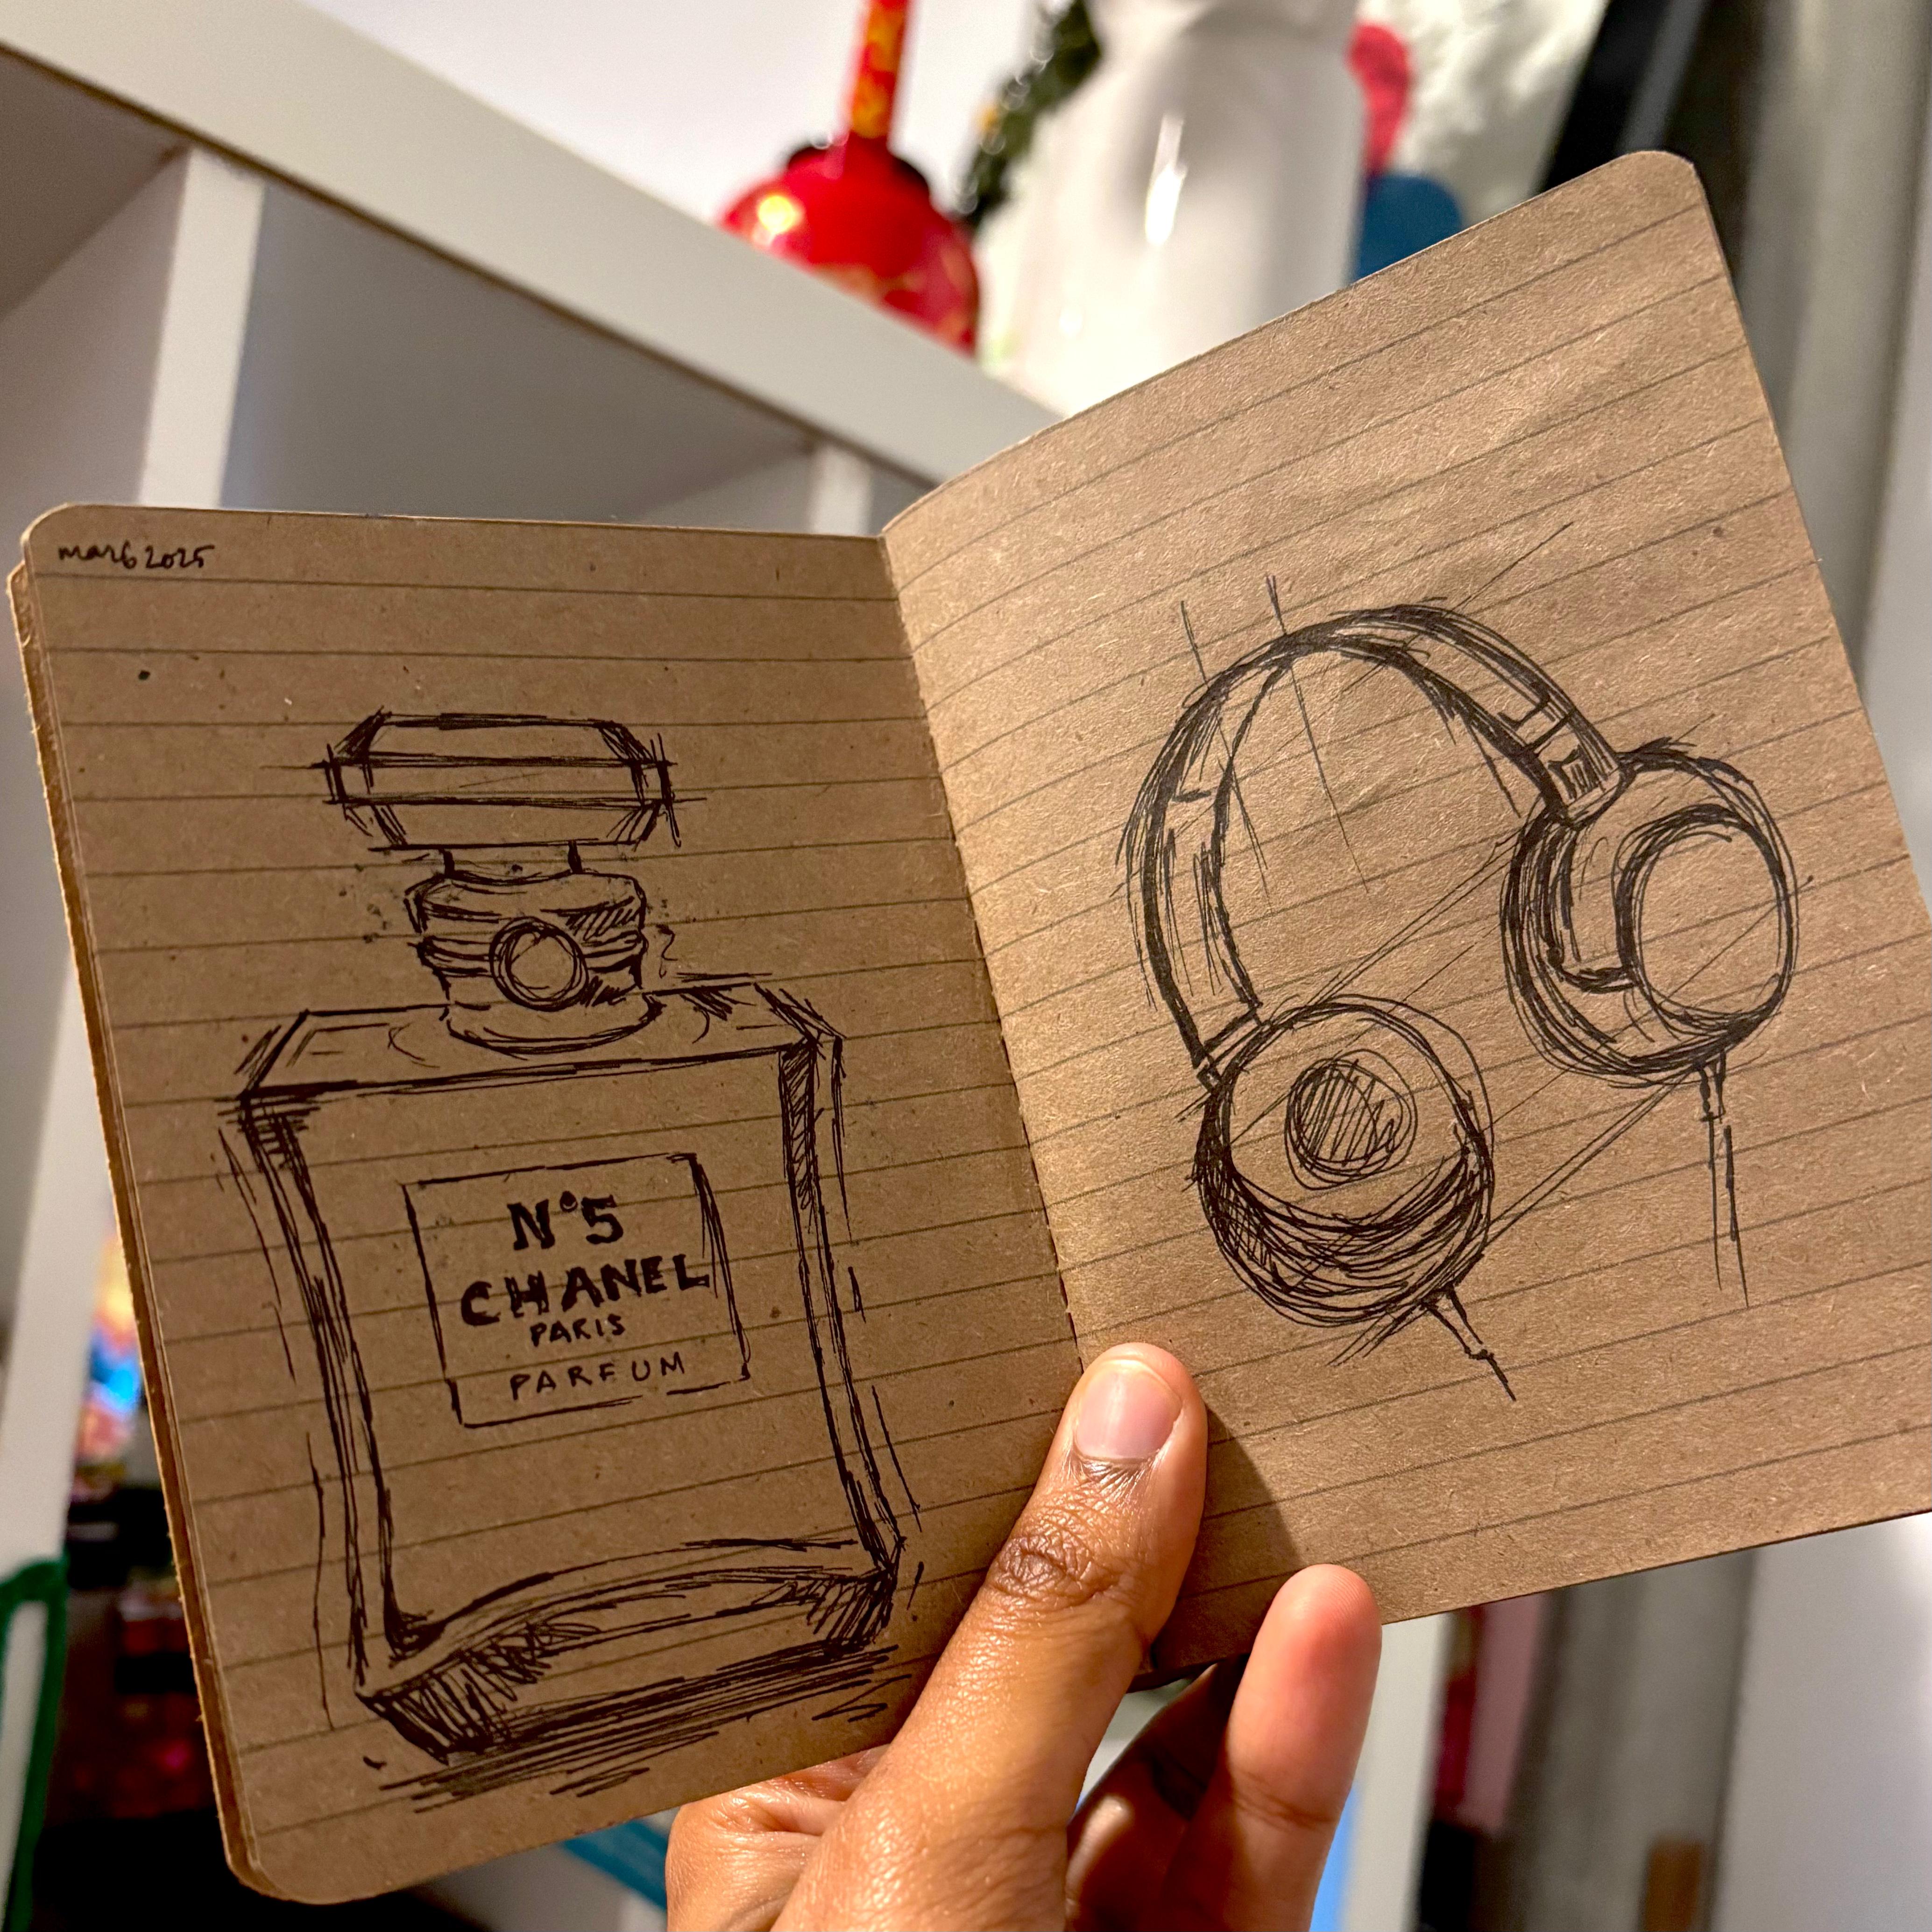 mar 6 2025
N°5
CHANEL
PARIS
PARFUM